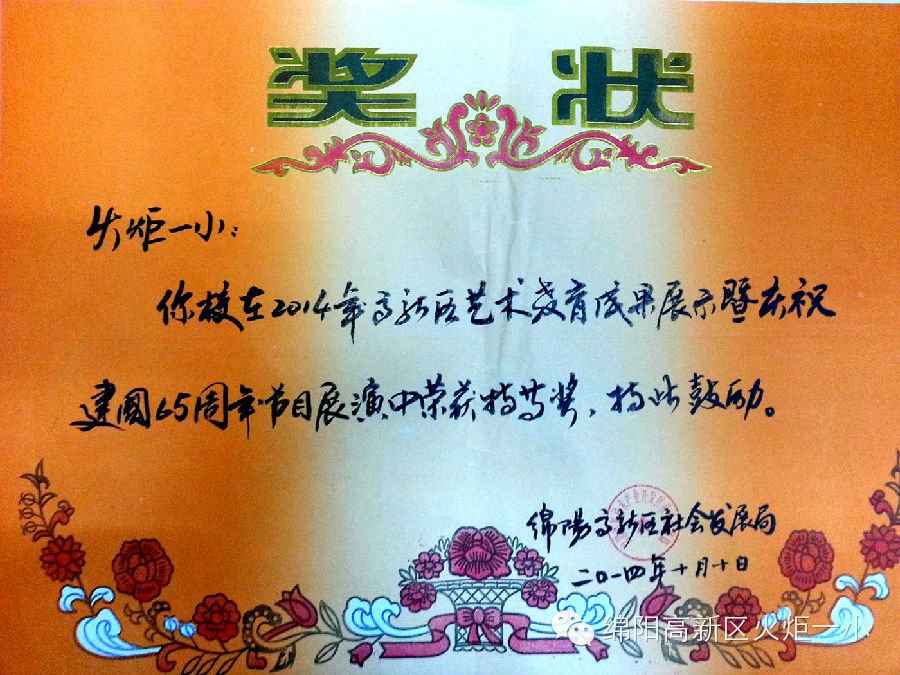 奖状
火炬一小：
你校在2014年高新区艺术教育成果展示暨庆祝
建国65周年节目展演中荣获特等奖，特此鼓励。
绵阳高新区社会发展局
二〇一四年十月十日
绵阳高新区火炬一小